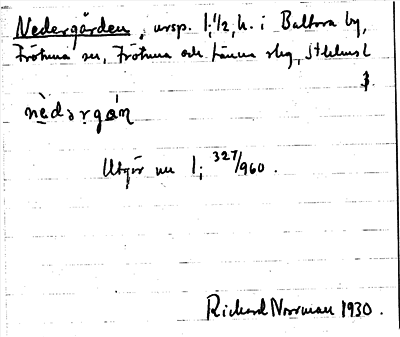 Nedergården, ursp. 1, 1/2, h. i Baltora by,
Frötuna sn, Frötuna och Länna slg, Sthlms l
nèdərgán
Utgör nu 1; 327/960.
Richard Norrman 1930.